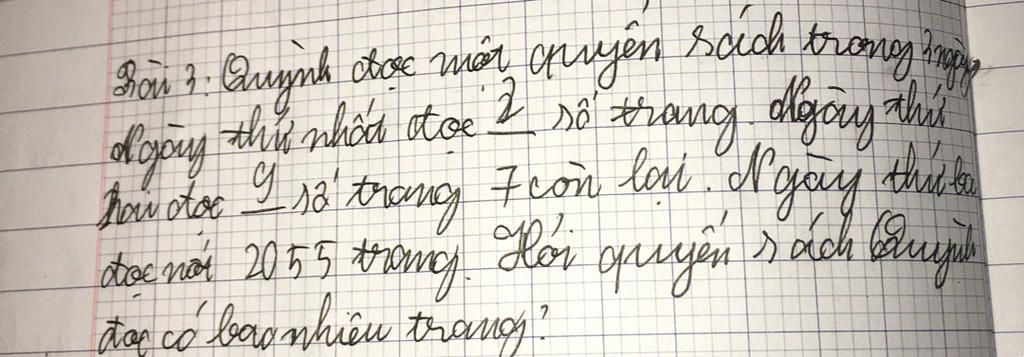 Bài 3: Quỳnh đọc một quyển sách trong 3 ngày,
Ngày thứ nhất đọc 2/ số trang. Ngày thứ
hai đọc 9/ số trang 7 còn lại. Ngày thứ ba
đọc nốt 2055 trang. Hỏi quyển sách Quỳnh
đọc có bao nhiêu trang?